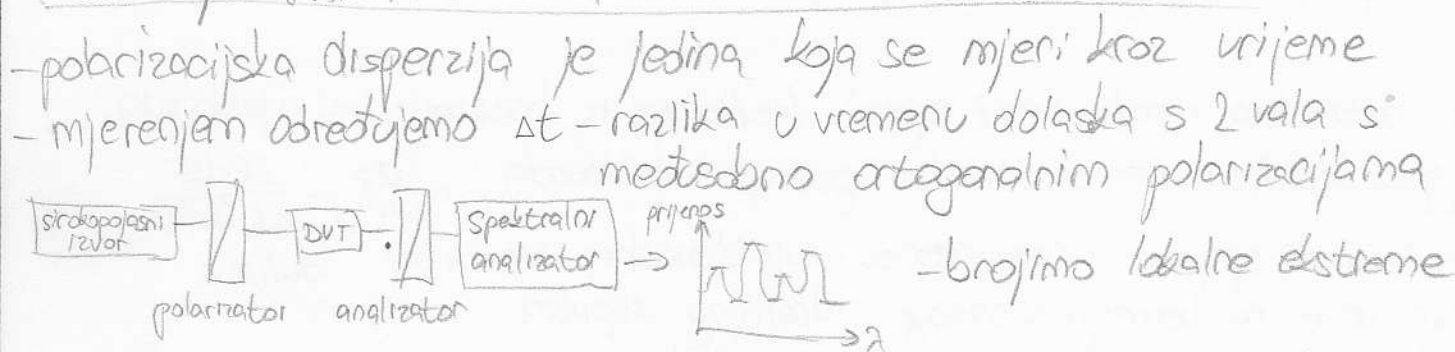 - polarizacijska disperzija je jedina koja se mjeri kroz vrijeme
- mjerenjem određujemo Δt - razlika u vremenu dolaska s 2 vala s
međusobno ortogonalnim polarizacijama
širokopojasni
izvor
DUT
Spektralni
analizator
prijenos
- brojimo lokalne ekstreme
polarizator analizator
λ